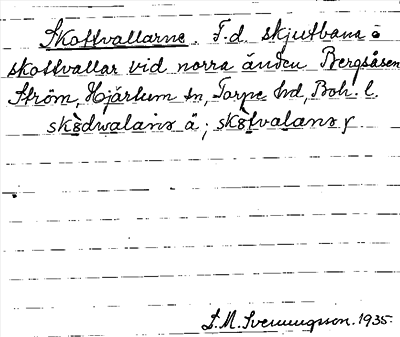 Skottvallarne. F.d. skjutbana o
skottvallar vid norra änden Bergsåsen
Ström, Hjärtum sn, Torpe hd, Boh. l.
skòdwalanɤ ä; skòtvalanɤ
S.M. Svenungsson. 1935.